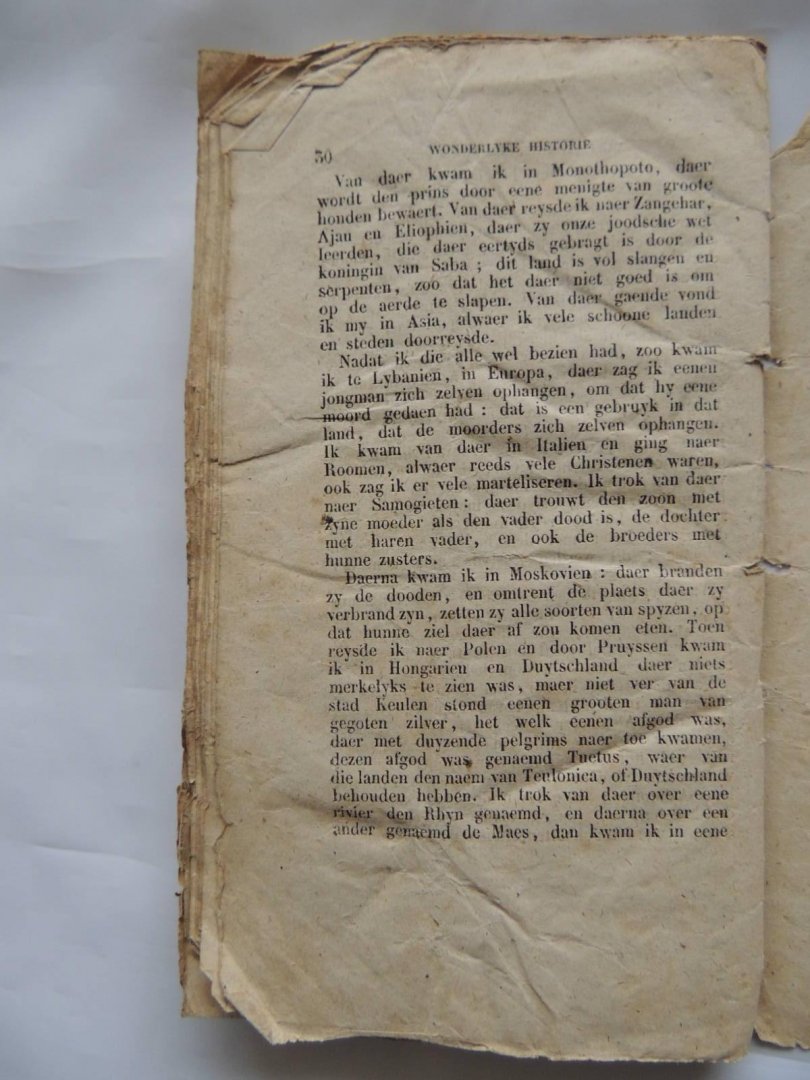 30
WONDERLYKE HISTORIE
Van daer kwam ik in Monothopoto, daer
wordt den prins door eene menigte van groote
honden bewaert. Van daer reysde ik naer Zangebar,
Ajan en Eliophien, daer zy onze joodsche wet
leerden, die daer eertyds gebragt is door de
koningin van Saba ; dit land is vol slangen en
serpenten, zoo dat het daer niet goed is om
op de aerde te slapen. Van daer gaende vond
ik my in Asia, alwaer ik vele schoone landen
en steden doorreysde.
Nadat ik die alle wel bezien had, zoo kwam
ik te Lybanien, in Europa, daer zag ik eenen
jongman zich zelven ophangen, om dat hy eene
moord gedaen had : dat is een gebruyk in dat
land, dat de moorders zich zelven ophangen.
Ik kwam van daer in Italien en ging naer
Roomen, alwaer reeds vele Christenen waren,
ook zag ik er vele marteliseren. Ik trok van daer
naer Samogieten : daer trouwt den zoon met
zyne moeder als den vader dood is, de dochter
met haren vader, en ook de broeders met
hunne zusters.
Daerna kwam ik in Moskovien : daer branden
zy de dooden, en omtrent de plaets daer zy
verbrand zyn, zetten zy alle soorten van spyzen, op
dat hunne ziel daer af zou komen eten. Toen
reysde ik naer Polen en door Pruyssen kwam
ik in Hongarien en Duytschland daer niets
merkelyks te zien was, maer niet ver van de
stad Keulen stond eenen grooten man van
gegoten zilver, het welk eenen afgod was,
daer met duyzende pelgrims naer toe kwamen,
dezen afgod was genaemd Tuetus, waer van
die landen den naem van Teutonica, of Duytschland
behouden hebben. Ik trok van daer over eene
rivier den Rhyn genaemd, en daerna over een
ander genaemd de Maes, dan kwam ik in eene